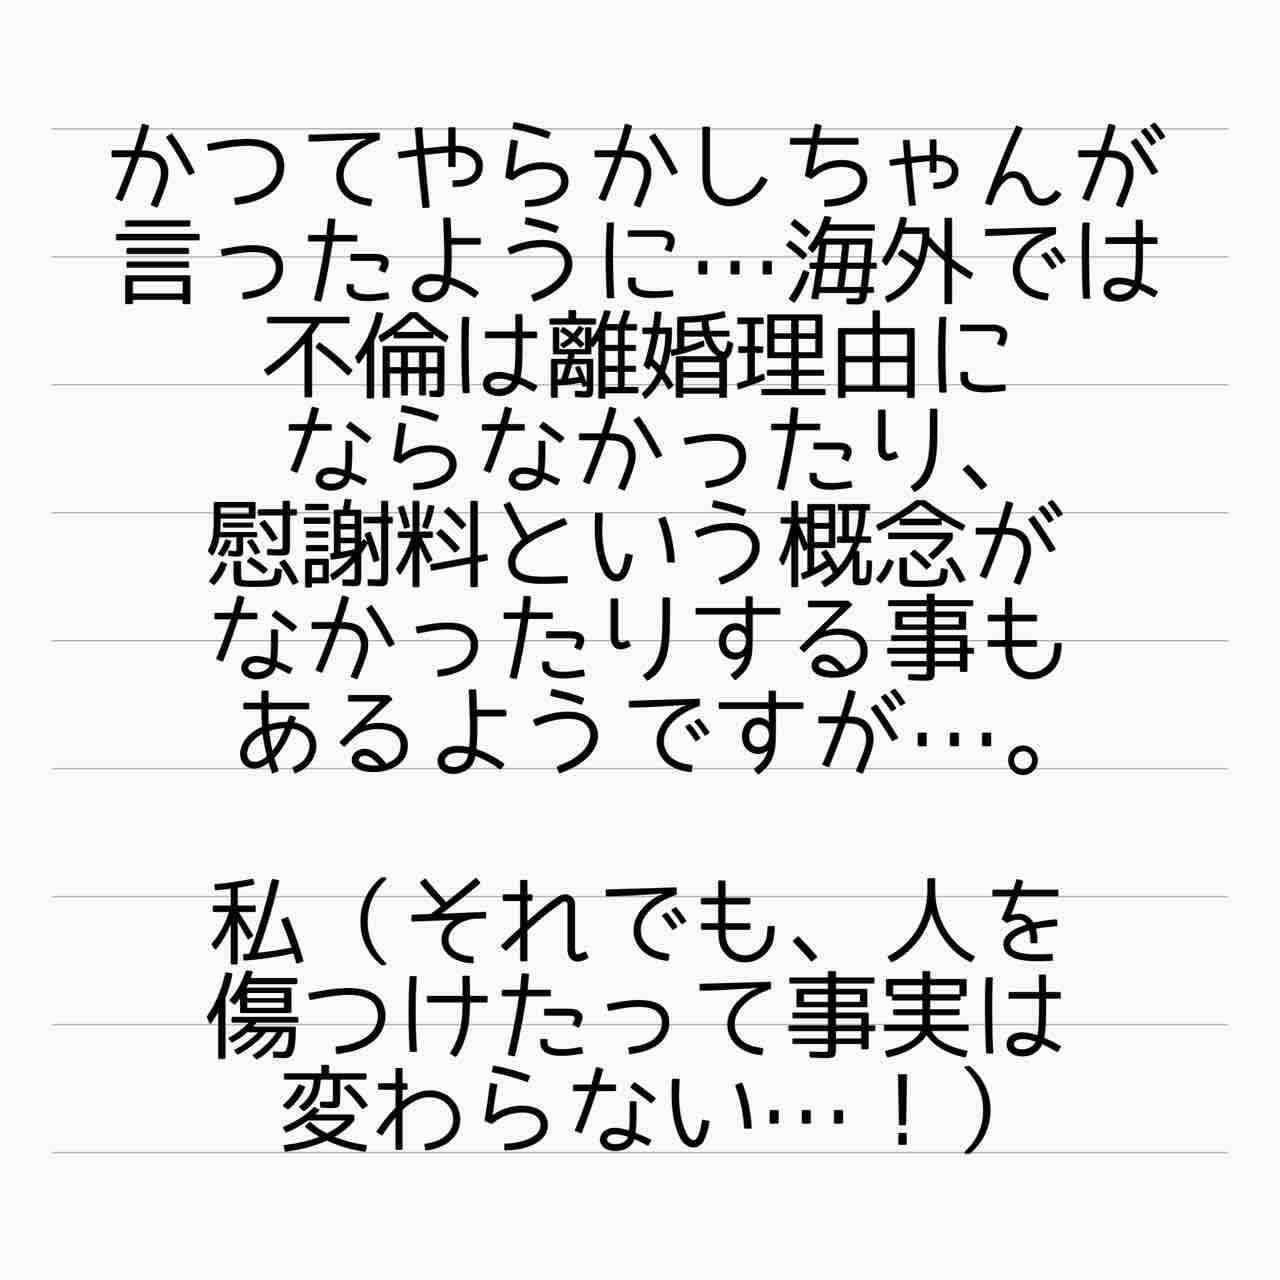 かつてやらかしちゃんが
言ったように…海外では
不倫は離婚理由に
ならなかったり、
慰謝料という概念が
なかったりする事も
あるようですが…。
私（それでも、人を
傷つけたって事実は
変わらない…！）